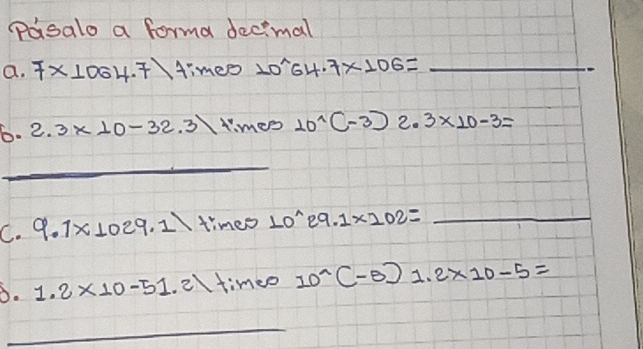 Pásalo a forma decimal
a. 7×1064.7\times 10^64.7×106= ________
b. 2.3×10-32.3\times 10^(-3) 2.3×10-3=
________
c. 9.1×1029.1\times 10^29.1×102= ________
d. 1.2×10-51.2\times 10^(-5) 1.2×10-5=
________